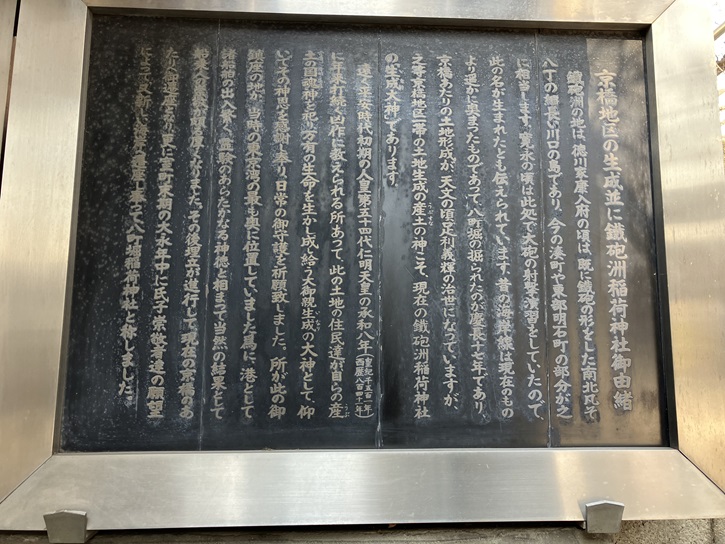 京橋地区の生成並に鐵砲洲稲荷神社御由緒
鐵砲洲の地は、徳川家康入府の頃は、既に鐵砲の形をした南北凡そ
八丁の細長い川口の島であり、今の湊町や東部明石町の部分が之
に相当します。寛永の頃は此処で大砲の射撃演習をしていたので、
此の名が生まれたとも伝えられています。昔の海岸線は現在のもの
より遥かに奥まったものであって、八町堀の掘られたのが慶長十七年であり、
京橋あたりの土地形成が、天文の頃足利義輝の治世になっていますが、
之等京橋地区一帯の土地生成の産土の神こそ、現在の鐵砲洲稲荷神社
の生成大神であります。
遠く平安時代初期の人皇第五十四代仁明天皇の承和八年(皇紀千五百一年 西歴八百四十一年)
に年来打続く凶作に教えられる所あって、此の土地の住民達が自らの産
土の国魂神を祀り万有の生命を生かし成し給う大御親生成の大神として、仰
いでその神恩を感謝し奉り、日常の御守護を祈願致しました。所が此の御
鎮座の地が、当時の東京湾の最も奥に位置していました為に、港として
諸船舶の出入繁く、霊験のあらたかなる神徳と相まって当然の結果として
船乗人の
その後埋立が進行して現在の京橋のあ
たりへ御遷座となり、更に室町末期の大永年中に氏子崇敬者達の願望
によって又新しい海岸へ遷座し奉って八町堀稲荷神社と称しました。